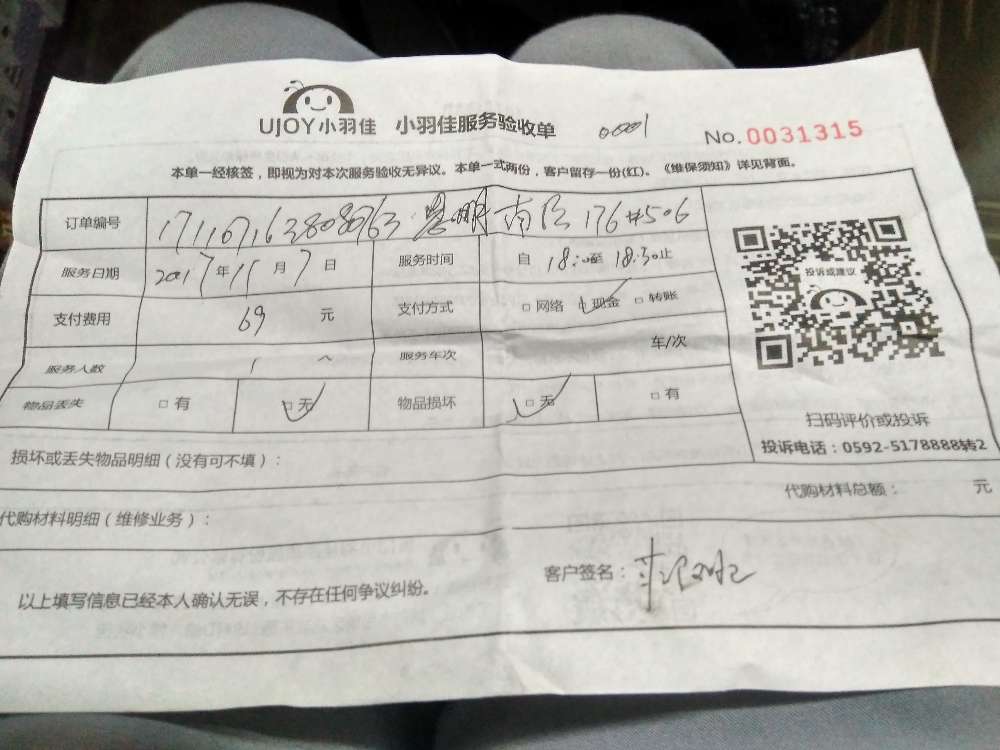 UJOY小羽佳 小羽佳服务验收单 0001 No.0031315
本单一经核签，即视为对本次服务验收无异议。本单一式两份，客户留存一份(红)。《维保须知》详见背面。
订单编号 南区 176#506
服务日期 2017年11月7日 服务时间 自 18:00至 18:30止
支付费用 69 元 支付方式 □网络 □现金 □转账
服务人数 1 人 服务车次 车/次
物品丢失 □有 □无 物品损坏 □无 □有
投诉或建议
扫码评价或投诉
投诉电话：0592-5178888转2
损坏或丢失物品明细（没有可不填）：
代购材料总额： 元
代购材料明细（维修业务）：
客户签名：
以上填写信息已经本人确认无误，不存在任何争议纠纷。